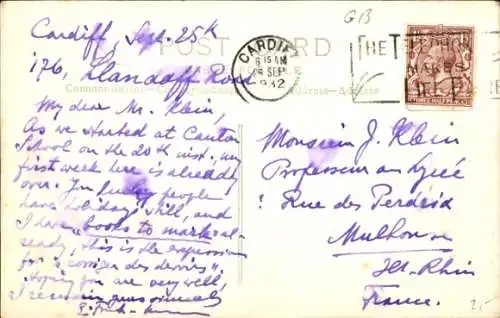 GB
Cardiff, Sept. 25th
POST CARD
176, Llandaff Road
CARDIFF
8 15 AM
SEP
1932
THE TELEPHONE
My dear Mr. Klein,
As we started at Canton
School on the 20th inst. my
first week here is already
over. You lucky people
have holidays still, and
I have "books to mark" al-
ready, this is the expression
for "corriger des devoirs".
Hoping you are very well,
I remain yours sincerely
Monsieur J. Klein
Professeur au Lycée
Rue des
Mulhouse
Ht-Rhin
France.
2,-